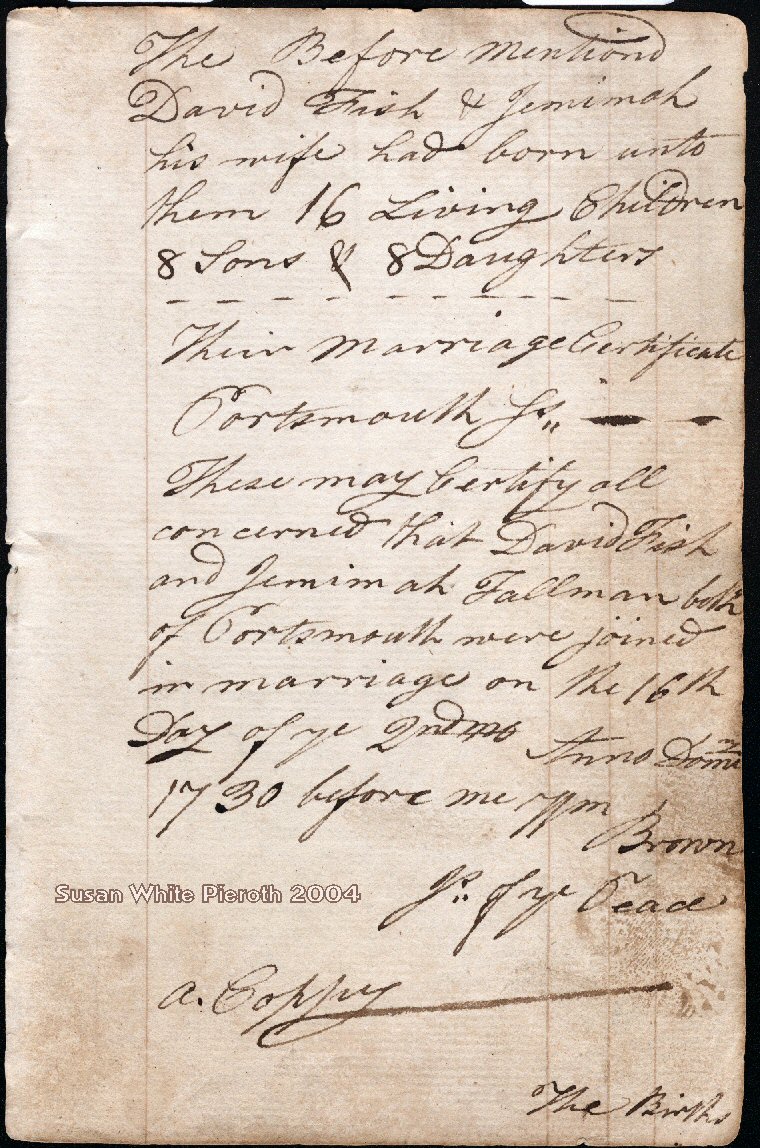 The Before mentiond
David Fish & Jemimah
his wife had born unto
them 16 Living Children
8 Sons & 8 Daughters
Their marriage Certificate
Portsmouth Ss,,
These may Certify all
concerned that David Fish
and Jemimah Tallman both
of Portsmouth were joined
in marriage on the 16th
Day of ye 2nd mo Anno Domi
1730 before me Wm
Brown
Js,, of ye Peace
Susan White Pieroth 2004
a. Coppy
The Births